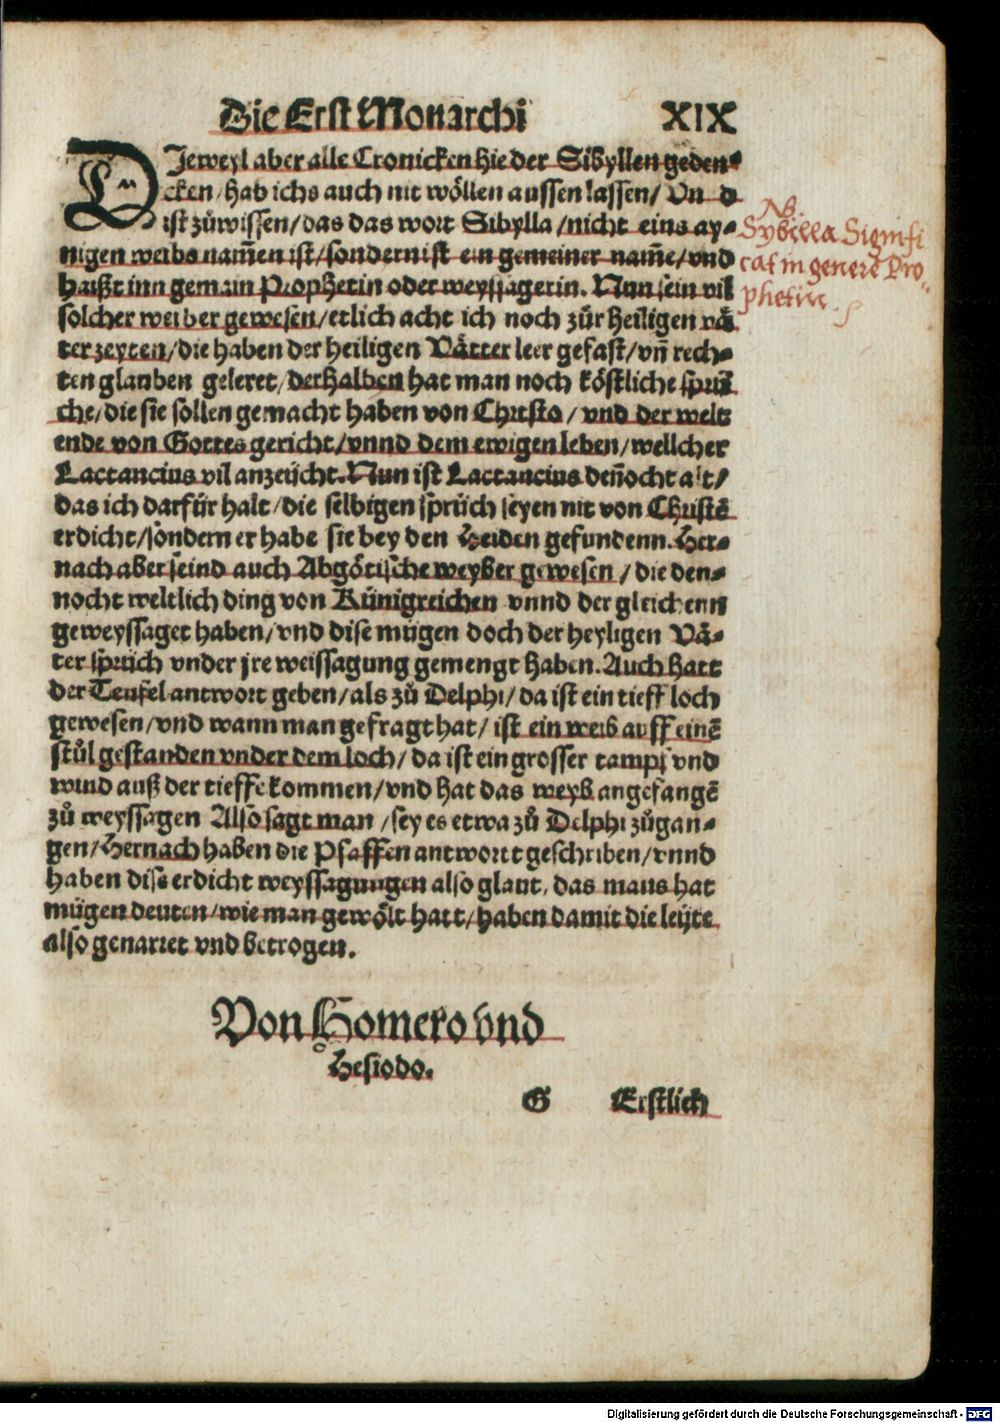 Die Erst Monarchi XIX
DJeweyl aber alle Cronicken hie der Sibyllen geden⸗
cken / hab ichs auch nit wöllen aussen lassen / Vn d
ist zůwissen / das das wort Sibylla / nicht eins ay⸗
nigen weibs nam̃en ist / sondern ist ein gemeiner nam̃e / vnd
haißt inn gemain Prophetin oder weyssagerin. Nun sein vil
solcher weiber gewesen / etlich acht ich noch zůr heiligen vä⸗
ter zeyten / die haben der heiligen Vätter leer gefast / vn̄ rech⸗
ten glauben geleret / derhalben hat man noch köstliche sprü⸗
che / die sie sollen gemacht haben von Christo / vnd der welt
ende von Gottes gericht / vnnd dem ewigen leben / wellcher
Lactancius vil anzeücht. Nun ist Lactancius den̄ocht alt /
das ich darfür halt / die selbigen sprüch seyen nit von Christē
erdicht / sondern er habe sie bey den Heiden gefundenn. Her⸗
nach aber seind auch Abgötische weyber gewesen / die den⸗
nocht weltlich ding von Künigreichen vnnd der gleichenn
geweyssaget haben / vnd dise mügen doch der heyligen Vä⸗
ter sprüch vnder jre weissagung gemengt haben. Auch hatt
der Teufel antwort geben / als zů Delphi / da ist ein tieff loch
gewesen / vnd wann man gefragt hat / ist ein weib auff einē
stůl gestanden vnder dem loch / da ist ein grosser tampf vnd
wind auß der tieffe kommen / vnd hat das weyb angefangē
zů weyssagen Also sagt man / sey es etwa zů Delphi zůgan⸗
gen / Hernach haben die Pfaffen antwort geschriben / vnnd
haben dise erdicht weyssagungen also glaut, das mans hat
mügen deuten / wie man gewölt hatt / haben damit die leüte
also genarret vnd betrogen.
NB.
Sybilla Signifi
cat in genere Pro⸗
phetin
Von Homero vnd
Hesiodo.
G Erstlich
Digitalisierung gefördert durch die Deutsche Forschungsgemeinschaft - DFG